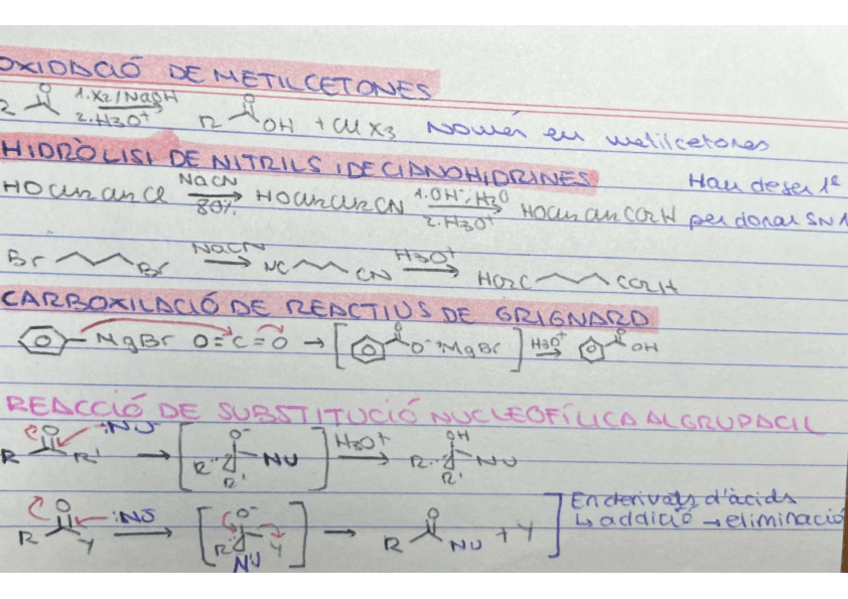 OXIDACIÓ DE METILCETONES
R 1. X2/NaOH 2. H3O+ R O OH + CHX3 Només en metilcetones
HIDRÒLISI DE NITRILS I DE CIANOHIDRINES
HOCH2CH2Cl NaCN 80% HOCH2CH2CN 1. OH-, H2O 2. H3O+ HOCH2CH2CO2H Han de ser 1º per donar SN1
Br Br NaCN → NC CN H3O+ → HO2C CO2H
CARBOXILACIÓ DE REACTIUS DE GRIGNARD
MgBr O=C=O → [ O O- +MgBr ] H3O+ → O OH
REACCIÓ DE SUBSTITUCIÓ NUCLEOFÍLICA AL GRUP ACIL
R O R' :NU → [ O- R NU R' ] H3O+ → OH R NU R'
R O Y :NU → [ O- R Y NU ] → R O NU + Y En derivats d'àcids
↳ addició → eliminació